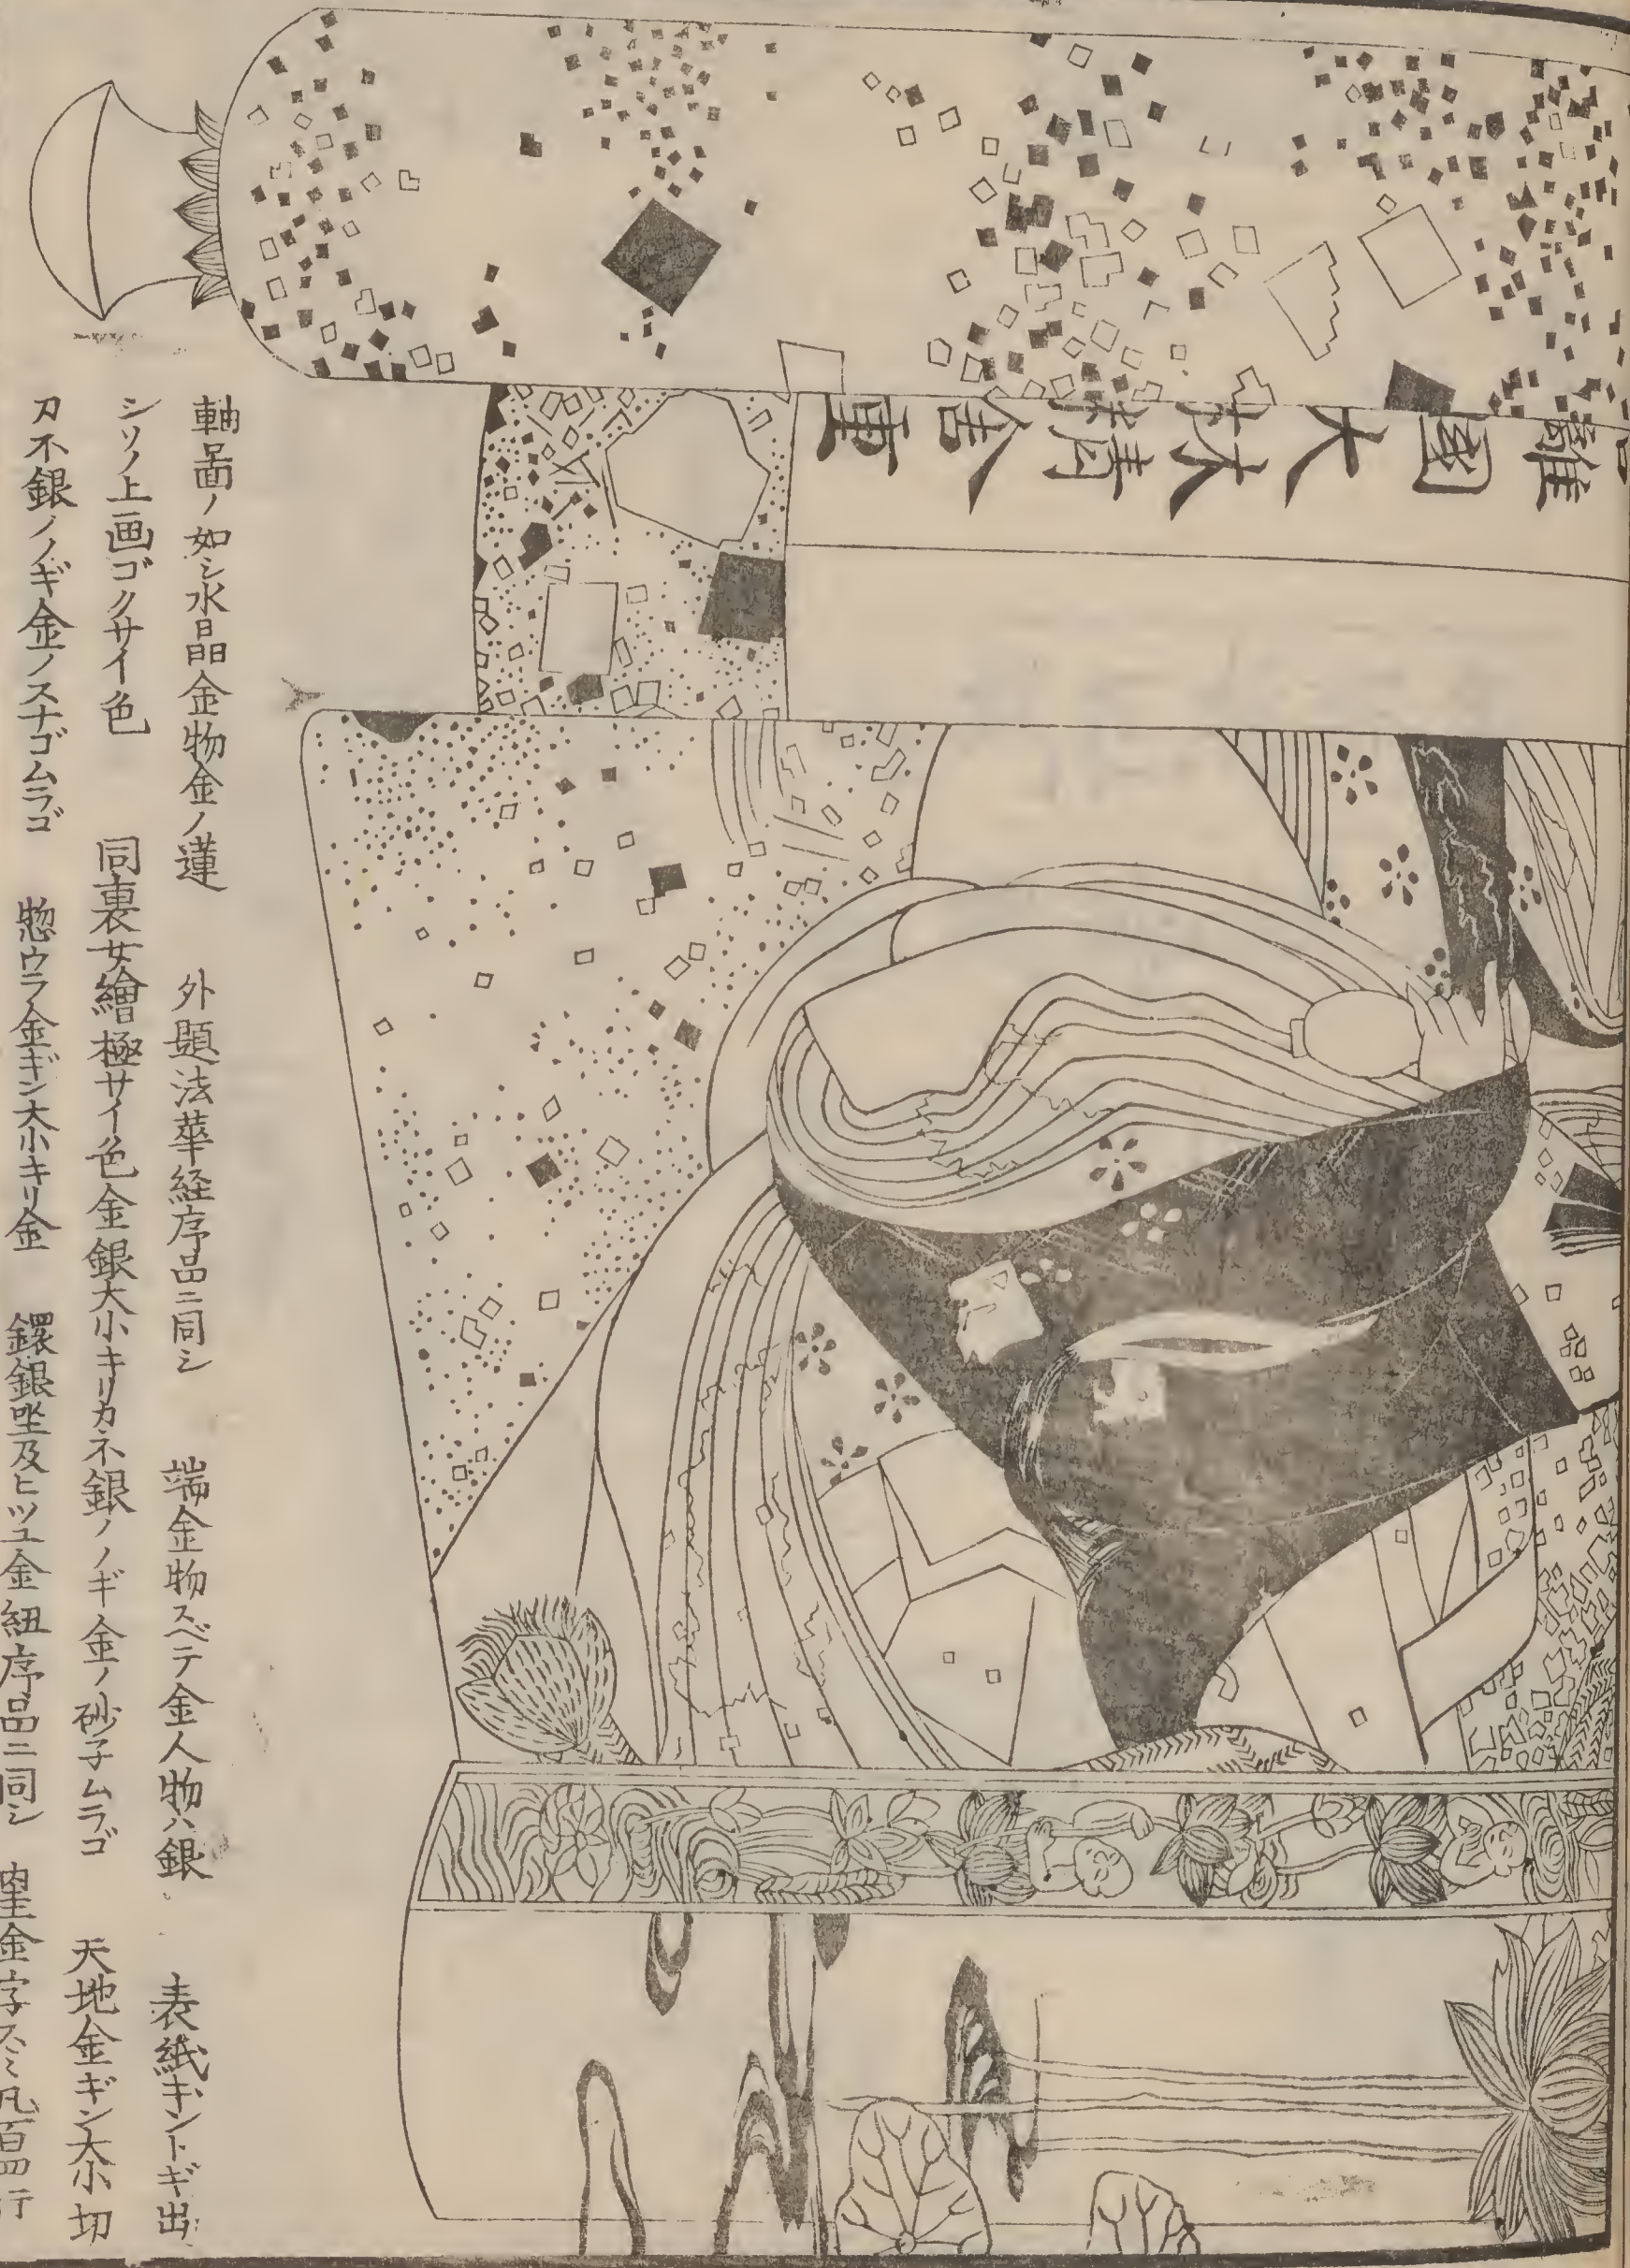 軸啚ノ如シ水晶金物金ノ蓮　外題法華経序品ニ同シ　端金物スベテ金人物ハ銀　表紙キントギ出
シソノ上画ゴクサイ色　同裏女繪極サイ色金銀大小キリカネ銀ノノギ金ノ砂子ムラゴ　天地金ギン大小切
カネ銀ノノギ金ノスナゴムラゴ　惣ウラ金ギン大小キリ金　鐶銀坐及ヒツユ金紐序品ニ同シ　金字スミ凡百四行